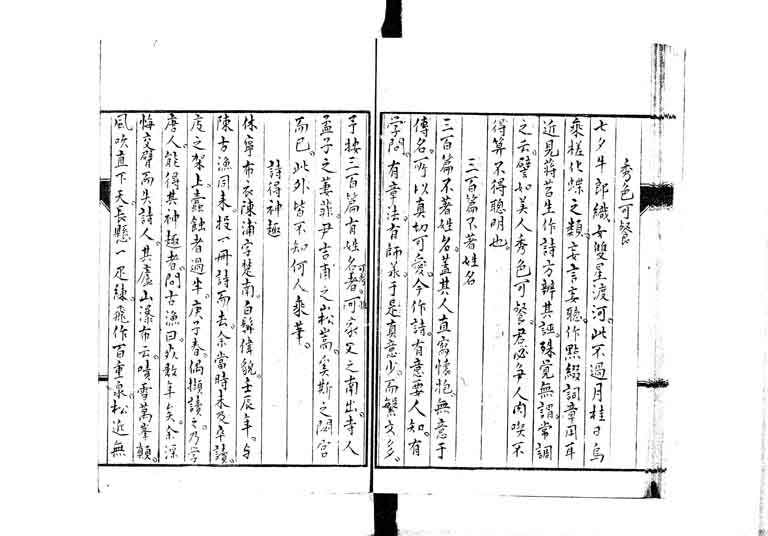 秀色可餐
七夕牛郎織女雙星渡河。此不過月桂日烏
乘槎化蝶之類。妄言妄聽。作點綴詞章用耳
近見蔣苕生作詩方辨其誣。殊覺無謂。常調
之云。譬如美人秀色可餐。君必每人肉喫不
得算不得聰明也。
三百篇不著姓名
三百篇不著姓名。蓋其人直寫懷抱。無意于
傳名。所以真切可愛。今作詩。有意要人知。有
學問。有章法有師承于是真意少。而繁文多。
予按三百篇有姓名可考者。家父之南山寺人
孟子之萋菲。尹吉甫之崧高。奚斯之閟宮
而已。此外皆不知何人秉筆。
詩得神趣
休寧布衣陳浦字楚南。白髯偉貌壬辰年。與
陳古漁同來投一冊詩而去。余當時未及卒讀。
庋之架上蠹蝕者過半。庚子春。偶撷讀之。乃學
唐人。能得其神趣者。問古漁曰。亡數年矣。余深
悔交臂而失詩人。其廬山瀑布云。噴雪萬峯巔。
風吹直下天。長懸一疋練。飛作百重泉。松近無